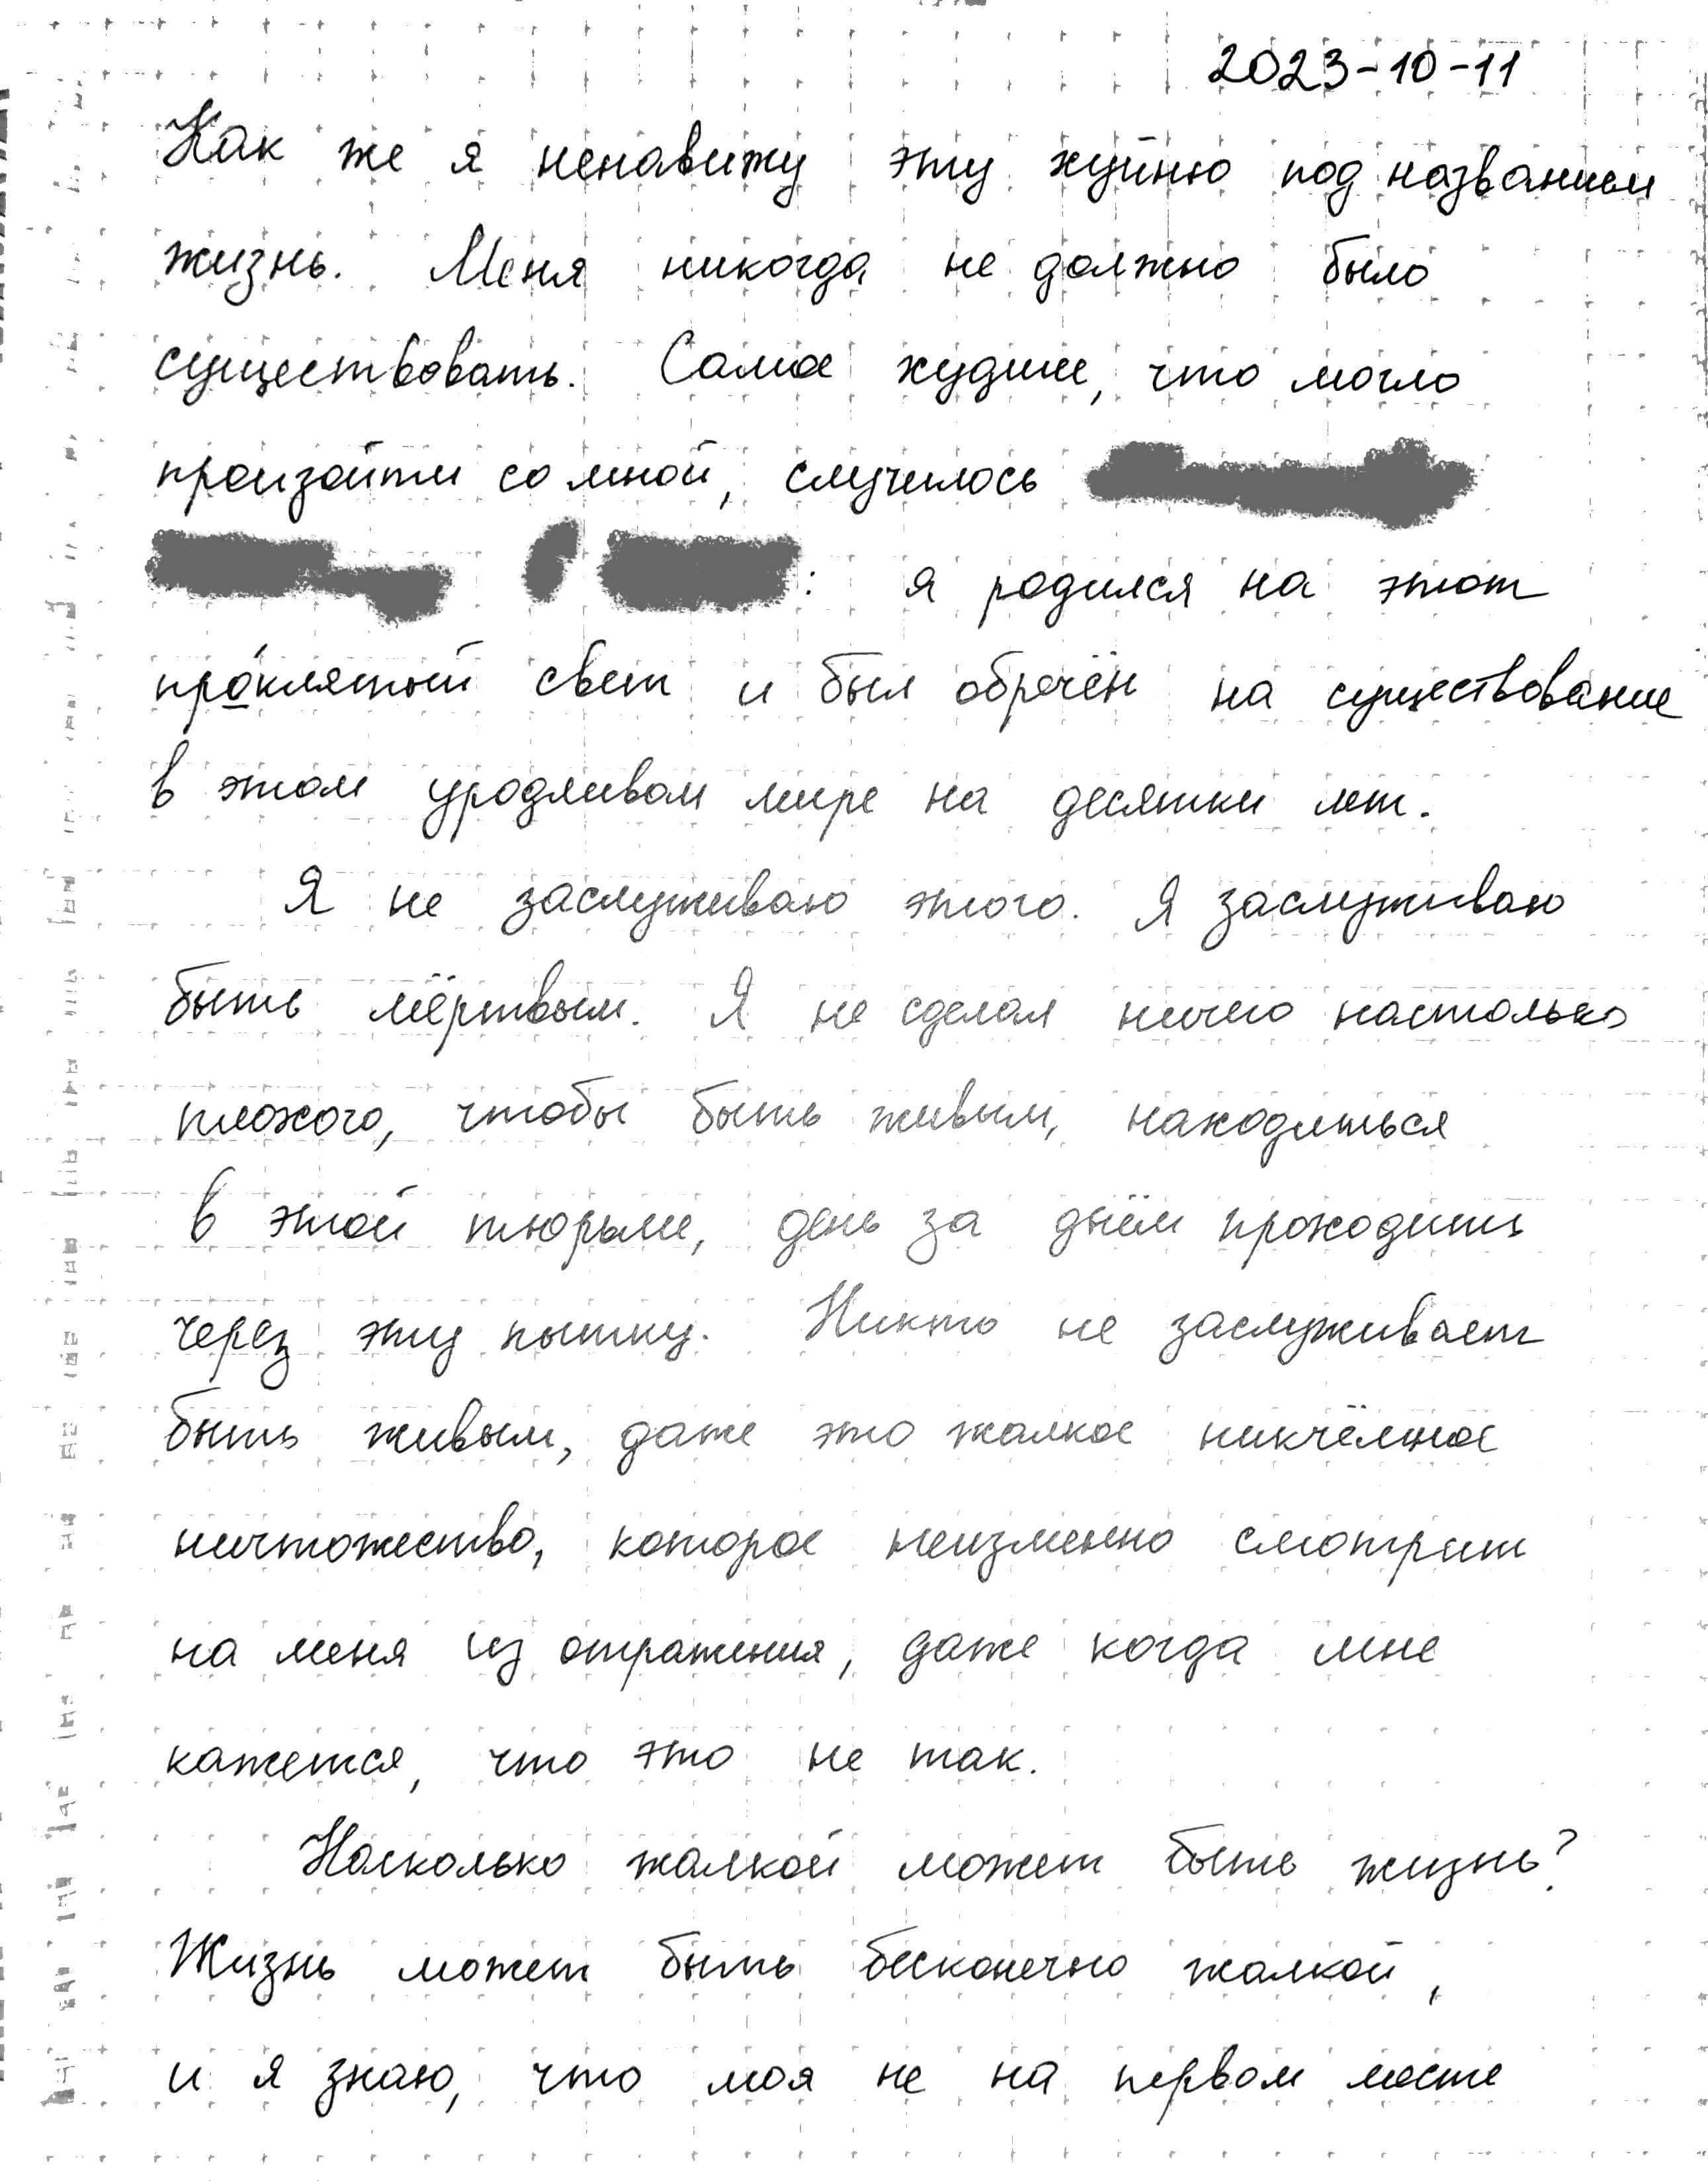 2023-10-11
Как же я ненавижу эту хуйню под названием
жизнь. Меня никогда не должно было
существовать. Самое худшее, что могло
произойти со мной, случилось
: я родился на этот
проклятый свет и был обречён на существование
в этом уродливом мире на десятки лет.
Я не заслуживаю этого. Я заслуживаю
быть мёртвым. Я не сделал ничего настолько
плохого, чтобы быть живым, находиться
в этой тюрьме, день за днём проходить
через эту пытку. Никто не заслуживает
быть живым, даже это жалкое никчёмное
ничтожество, которое неизменно смотрит
на меня из отражения, даже когда мне
кажется, что это не так.
Насколько жалкой может быть жизнь?
Жизнь может быть бесконечно жалкой,
и я знаю, что моя не на первом месте